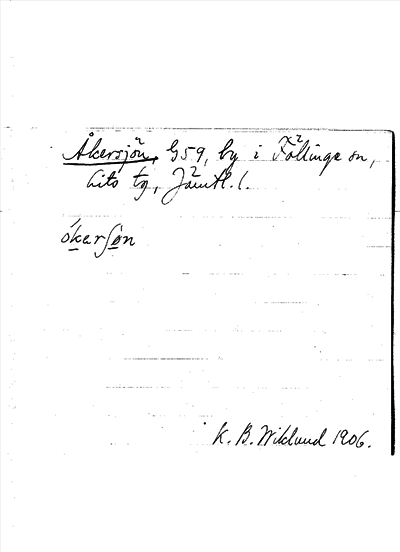 Åkersjön, G59, by i Föllinge sn,
Lits tg, Jämtl. l.
ókerʃøn
K. B. Wiklund 1906.